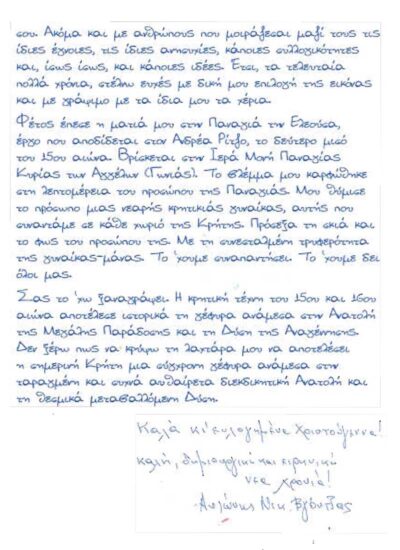 σου. Ακόμα και με ανθρώπους που μοιράζεσαι μαζί τους τις
ίδιες έγνοιες, τις ίδιες ανησυχίες, κάποιες συλλογικότητες
και, ίσως ίσως, και κάποιες ιδέες. Έτσι, τα τελευταία
πολλά χρόνια, στέλνω ευχές με δική μου επιλογή της εικόνας
και με γράψιμο με τα ίδια μου τα χέρια.
Φέτος έπεσε η ματιά μου στην Παναγιά την Ελεούσα,
έργο που αποδίδεται στον Ανδρέα Ρίτζο, το δεύτερο μισό
του 15ου αιώνα. Βρίσκεται στην Ιερά Μονή Παναγίας
Κυρίας των Αγγέλων (Γωνιάς). Το βλέμμα μου καρφώθηκε
στη λεπτομέρεια του προσώπου της Παναγιάς. Μου θύμισε
το πρόσωπο μιας νεαρής κρητικιάς γυναίκας, αυτής που
συναντάμε σε κάθε χωριό της Κρήτης. Πρόσεξα τη σκιά και
το φως του προσώπου της. Με τη συνεσταλμένη τρυφερότητα
της γυναίκας-μάνας. Το 'χουμε συναπαντήσει. Το 'χουμε δει
όλοι μας.
Σας το 'χω ξαναγράψει. Η κρητική τέχνη του 15ου και 16ου
αιώνα αποτέλεσε ιστορικά τη γέφυρα ανάμεσα στην Ανατολή
της Μεγάλης Παράδοσης και τη Δύση της Αναγέννησης.
Δεν ξέρω πως να κρύψω τη λαχτάρα μου να αποτελέσει
η σημερινή Κρήτη μια σύγχρονη γέφυρα ανάμεσα στην
ταραγμένη και συχνά αυθαίρετα διεκδικητική Ανατολή και
τη θεσμικά μεταβαλλόμενη Δύση.
Καλά κι' ευλογημένα Χριστούγεννα!
καλή, δημιουργική και ειρηνική
νέα χρονιά!
Αντώνης Νικ.